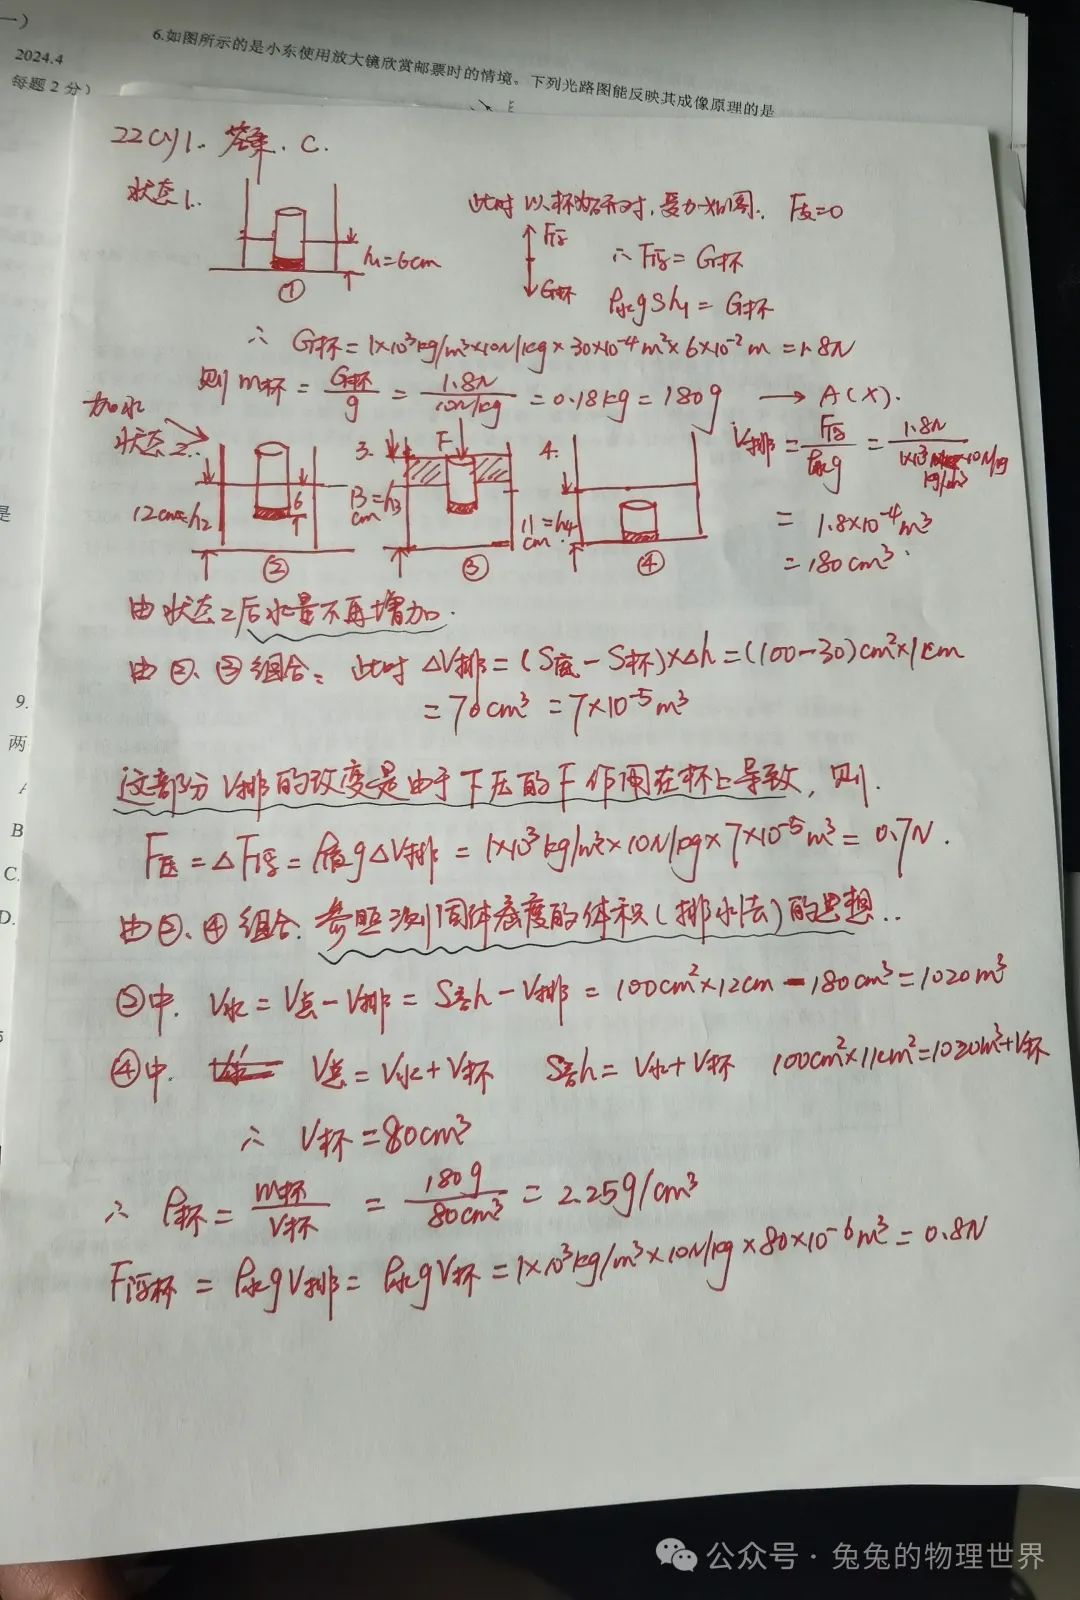 一）
2024.4
每题2分）
6.如图所示的是小东使用放大镜欣赏邮票时的情境。下列光路图能反映其成像原理的是
22cy1. 答案. C.
状态1..
h₁=6cm
①
此时以杯为研对,受力如图.. F支=0
F浮
G杯
∴ F浮=G杯
ρ水gSh₁=G杯
∴ G杯=1×10³kg/m³×10N/kg×30×10⁻⁴m²×6×10⁻²m=1.8N
则 m杯=G杯/g=1.8N/10N/kg=0.18kg=180g → A(×).
加水
状态2..
12cm=h₂
6
②
3.
F
13cm=h₃
③
4.
11cm=h₄
④
V排=F浮/ρ水g=1.8N/1×10³kg/m³×10N/kg
=1.8×10⁻⁴m³
=180cm³.
由状态2后水量不再增加.
由②、③组合: 此时ΔV排=(S底-S杯)×Δh=(100-30)cm²×1cm
=70cm³=7×10⁻⁵m³
这部分V排的改变是由于下压的F作用在杯上导致,则.
F压=ΔF浮=ρ液gΔV排=1×10³kg/m³×10N/kg×7×10⁻⁵m³=0.7N.
由②、④组合.参照测固体密度的体积(排水法)的思想..
②中. V水=V总-V排=S容h-V排=100cm²×12cm-180cm³=1020m³
④中. V总=V水+V杯 S容h=V水+V杯 100cm²×11cm²=1020m³+V杯
∴ V杯=80cm³
∴ ρ杯=m杯/V杯=180g/80cm³=2.25g/cm³
F浮杯=ρ水gV排=ρ水gV杯=1×10³kg/m³×10N/kg×80×10⁻⁶m³=0.8N
是
9.
两
B
C.
D.
公众号·兔兔的物理世界